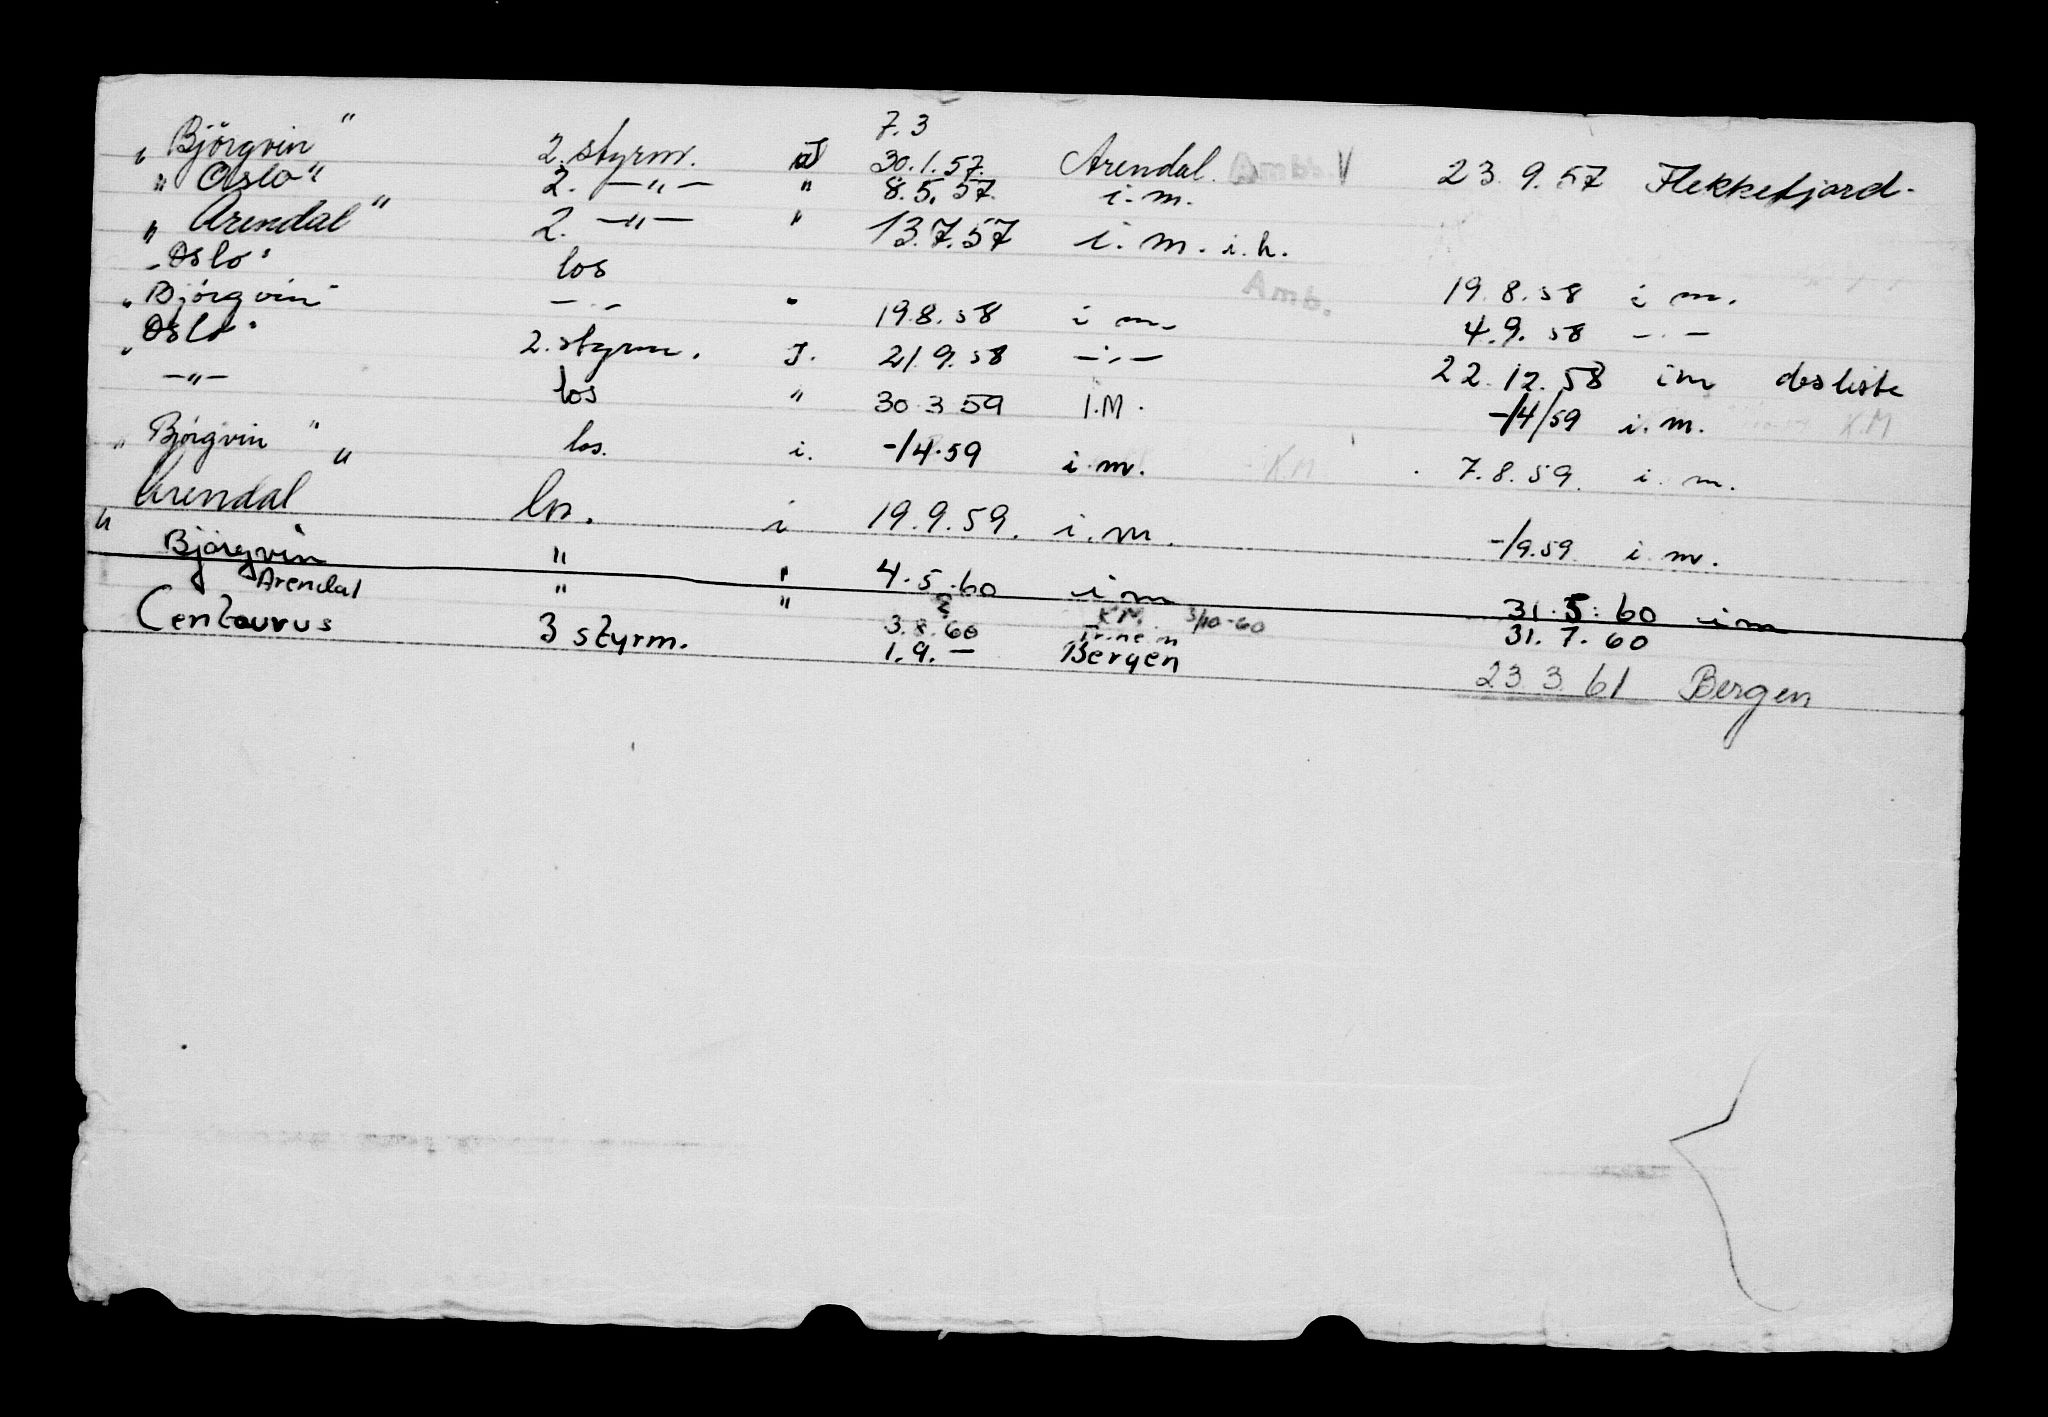 7.3
„ Björgvin " 2. styrm. J 30.1.57. Arendal. Amb. V 23.9.57 Flekkefjord.
„ Oslo " 2. —"— " 8.5.57. i.m.
„ Arendal " 2. —"— " 13.7.57 i.m. i.h.
„ Oslo " los 19.8.58 i m.
„ Björgvin " —"— " 19.8.58 i m. Amb. 4.9.58 —"—
„ Oslo " 2. styrm. J. 21.9.58 —"— 22.12.58 im desliste
—"— los " 30.3 59 I.M. -/4/59 i.m. K.M
„ Björgvin " los. i. -/4.59 i.m. K.M. 7.8.59. i. m.
„ Arendal " los. i 19.9.59. i.m. -/9.59 i. m.
" Björgvin " " 4.5.60 im 31.5.60 im
Arendal " " 3.8.60 K.M. 3/10-60 31.7.60
Centaurus 3 styrm. 1.9. — Bergen 23 3 61 Bergen